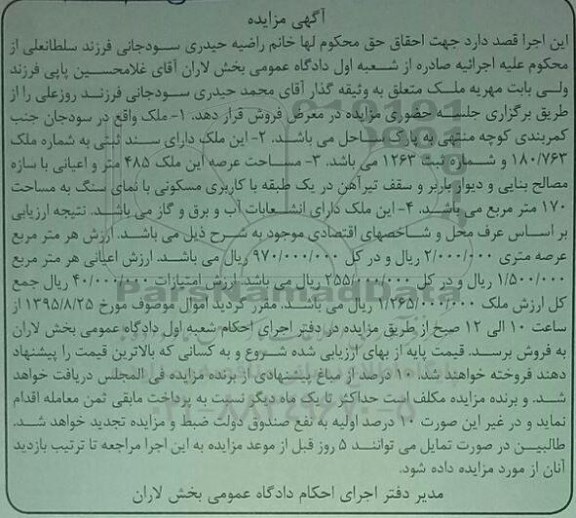 آگهی مزایده
این اجرا قصد دارد جهت احقاق حق محکوم لها خانم راضیه حیدری سودجانی فرزند سلطانعلی از
محکوم علیه اجرائیه صادره از شعبه اول دادگاه عمومی بخش لاران آقای غلامحسین پاپی فرزند
ولی بابت مهریه ملک متعلق به وثیقه گذار آقای محمد حیدری سودجانی فرزند روزعلی را از
طریق برگزاری جلسه حضوری مزایده در معرض فروش قرار دهد. ۱- ملک واقع در سودجان جنب
کمربندی کوچه منتهی به پارک ساحل می باشد. ۲- این ملک دارای سند ثبتی به شماره ملک
۱۸۰/۷۶۳ و شماره ثبت ۱۲۶۳ می باشد. ۳- مساحت عرصه این ملک ۴۸۵ متر و اعیانی با سازه
مصالح بنایی و دیوار باربر و سقف تیرآهن در یک طبقه با کاربری مسکونی با نمای سنگ به مساحت
۱۷۰ متر مربع می باشد. ۴- این ملک دارای انشعابات آب و برق و گاز می باشد. نتیجه ارزیابی
بر اساس عرف محل و شاخصهای اقتصادی موجود به شرح ذیل می باشد. ارزش هر متر مربع
عرصه متری ۲/۰۰۰/۰۰۰ ریال و در کل ۹۷۰/۰۰۰/۰۰۰ ریال می باشد. ارزش اعیانی هر متر مربع
۱/۵۰۰/۰۰۰ ریال و در کل ۲۵۵/۰۰۰/۰۰۰ ریال می باشد ارزش امتیازات ۴۰/۰۰۰/۰۰۰ ریال جمع
کل ارزش ملک ۱/۲۶۵/۰۰۰/۰۰۰ ریال می باشد. مقرر گردید اموال موصوف مورخ ۱۳۹۵/۸/۲۵ از
ساعت ۱۰ الی ۱۲ صبح از طریق مزایده در دفتر اجرای احکام شعبه اول دادگاه عمومی بخش لاران
به فروش برسد. قیمت پایه از بهای ارزیابی شده شروع و به کسانی که بالاترین قیمت را پیشنهاد
دهند فروخته خواهند شد. ۱۰ درصد از مبلغ پیشنهادی از برنده مزایده فی المجلس دریافت خواهد
شد. و برنده مزایده مکلف است حداکثر تا یک ماه دیگر نسبت به پرداخت مابقی ثمن معامله اقدام
نماید و در غیر این صورت ۱۰ درصد اولیه به نفع صندوق دولت ضبط و مزایده تجدید خواهد شد.
طالبین در صورت تمایل می توانند ۵ روز قبل از موعد مزایده به این اجرا مراجعه تا ترتیب بازدید
آنان از مورد مزایده داده شود.
مدیر دفتر اجرای احکام دادگاه عمومی بخش لاران
ParsNamadData
۰۲۱-۸۸۳۴۹۶۷۰-۵